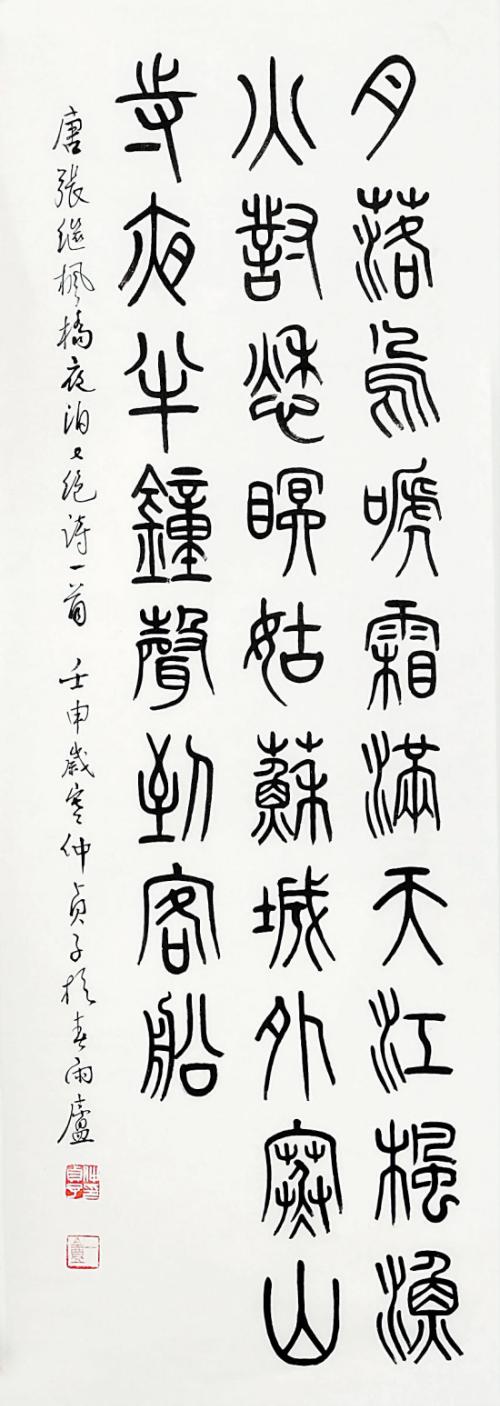 月落烏嗁霜滿天江楓漁
火對愁眠姑蘇城外寒山
寺夜半鐘聲到客船
唐張继楓橋夜泊七絕詩一首 壬申歲寒仲貞子於春雨廬